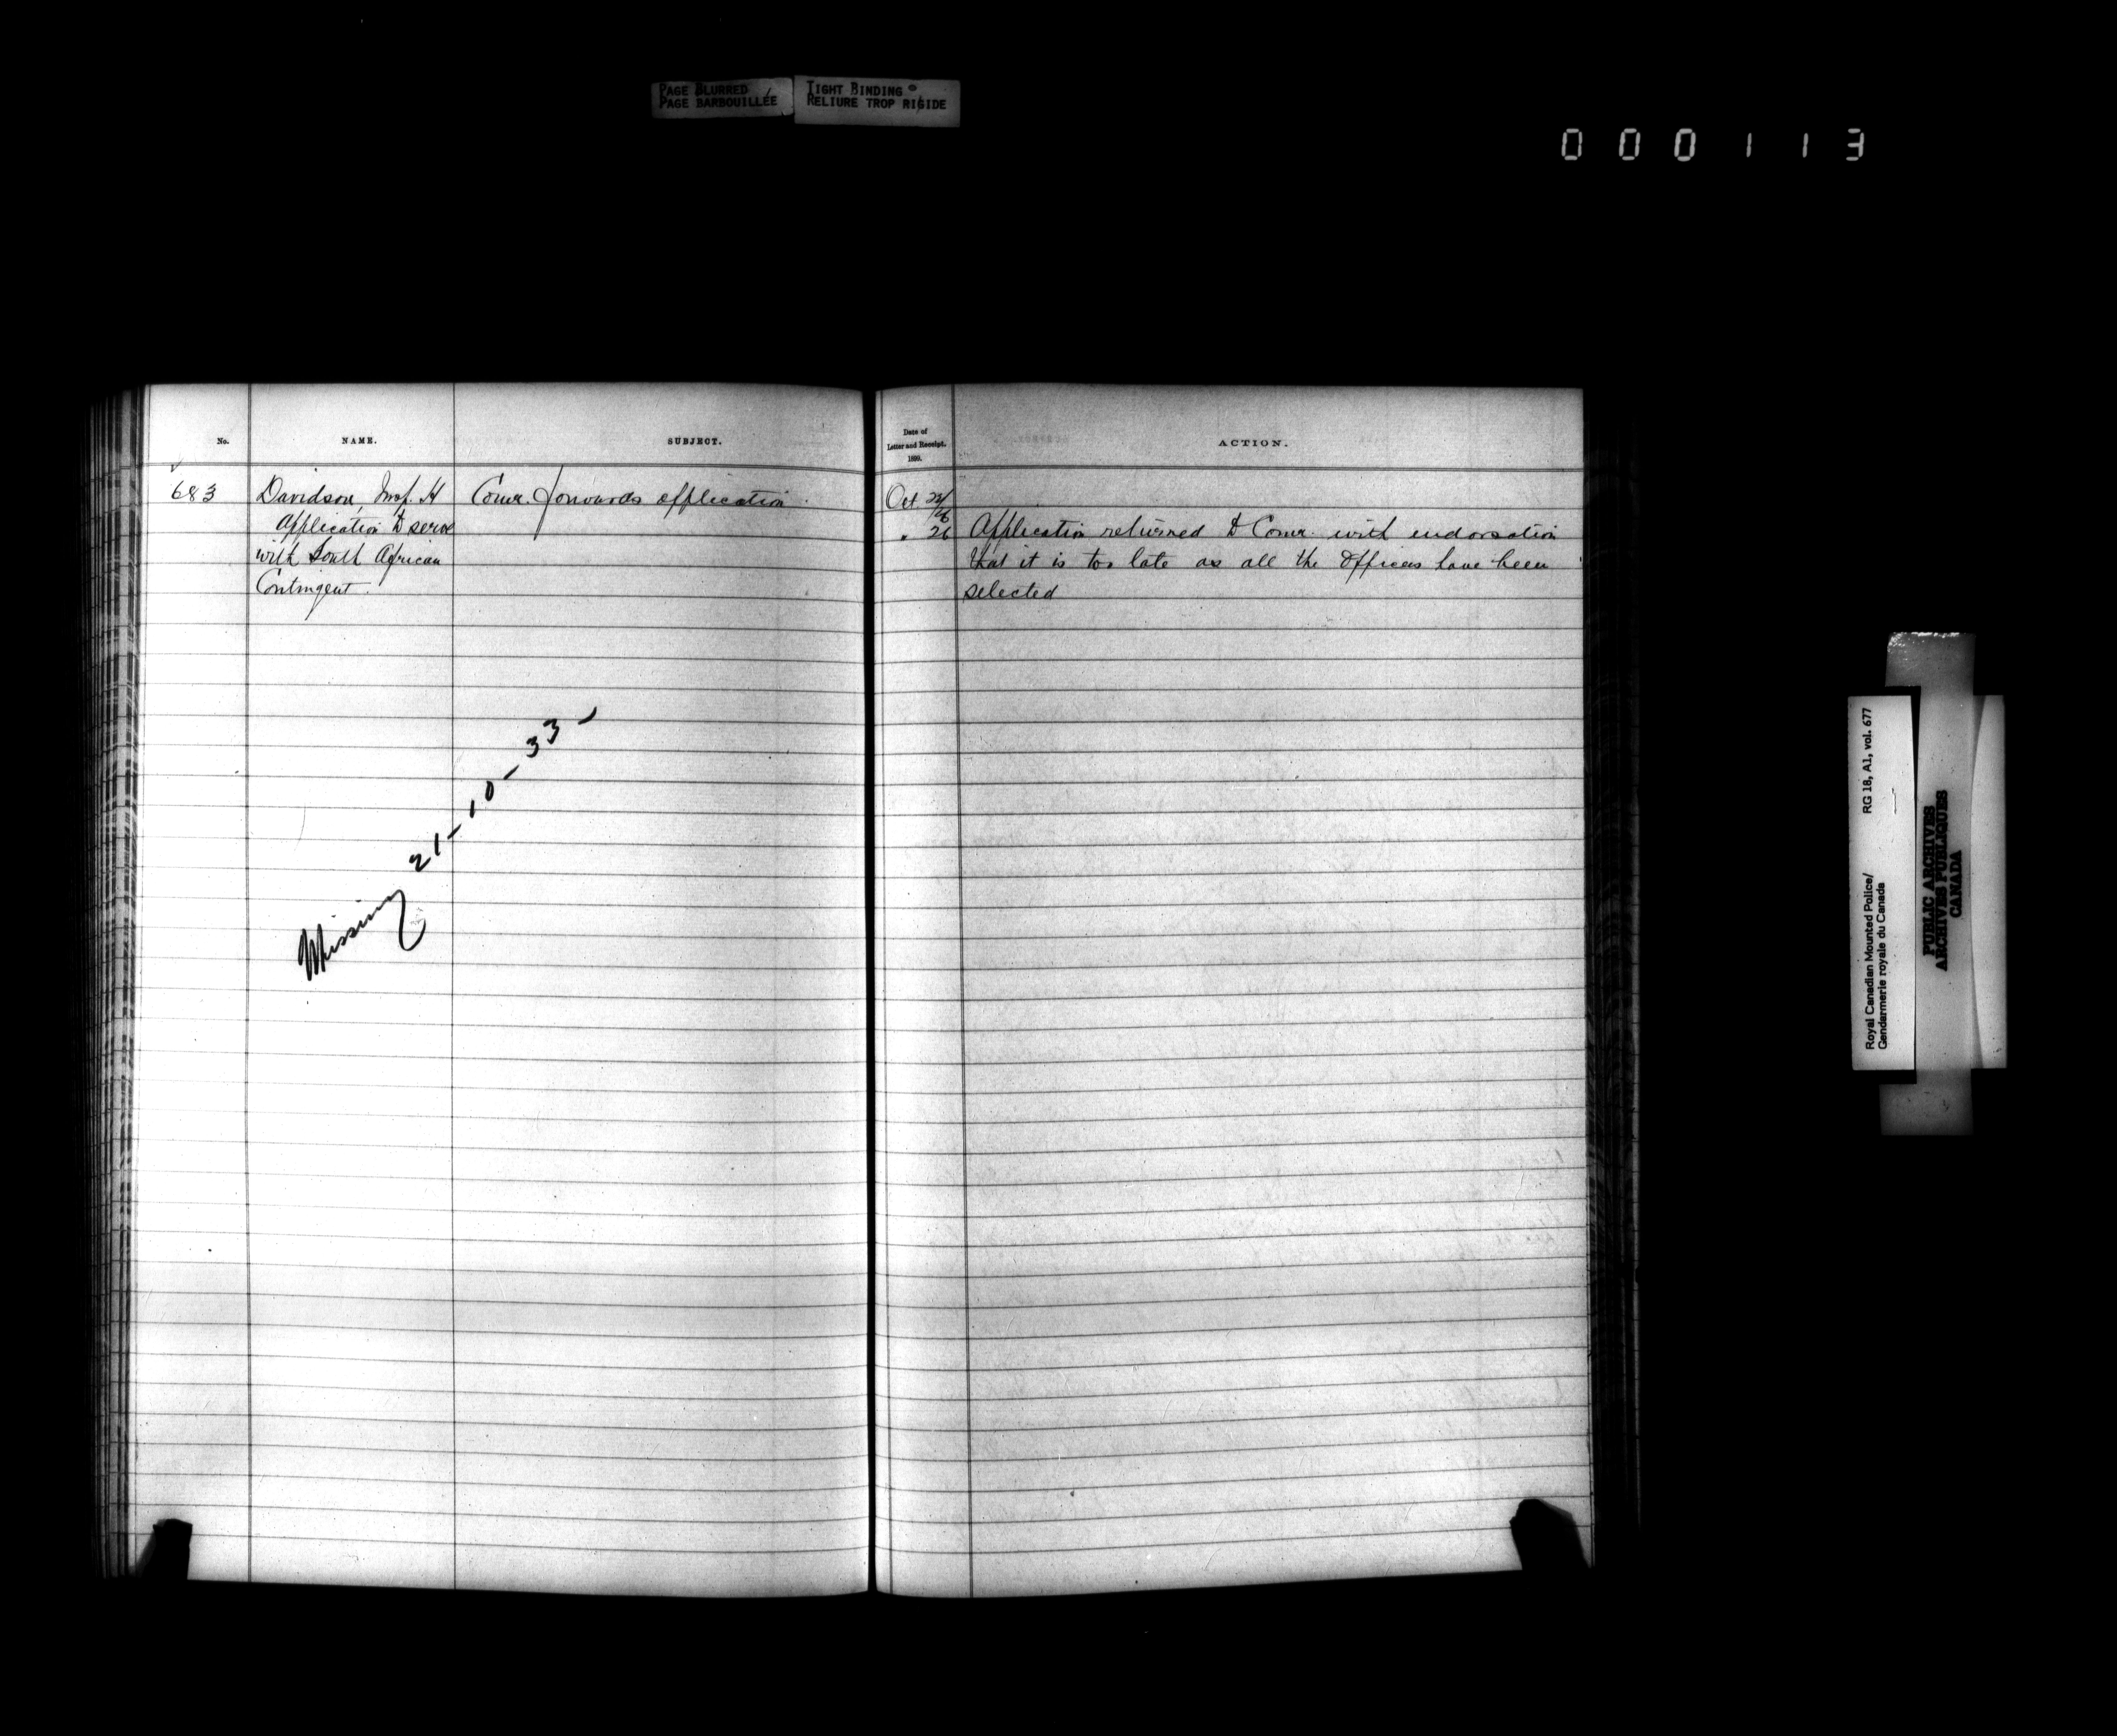 PAGE BLURRED
PAGE BARBOUILLÉE
TIGHT BINDING
RELIURE TROP RIGIDE
000113
No.
NAME.
SUBJECT.
Date of
Letter and Receipt.
1899.
ACTION.
683
Davidson, Insp. H
Application to serve
with South African
Contingent.
Comr. forwards application.
Oct 22/26
" 26
Application returned to Comr. with endorsation
that it is too late as all the Officers have been
selected
Missing 21-10-33-
Royal Canadian Mounted Police/ RG 18, A1, vol. 677
Gendarmerie royale du Canada
PUBLIC ARCHIVES
ARCHIVES PUBLIQUES
CANADA